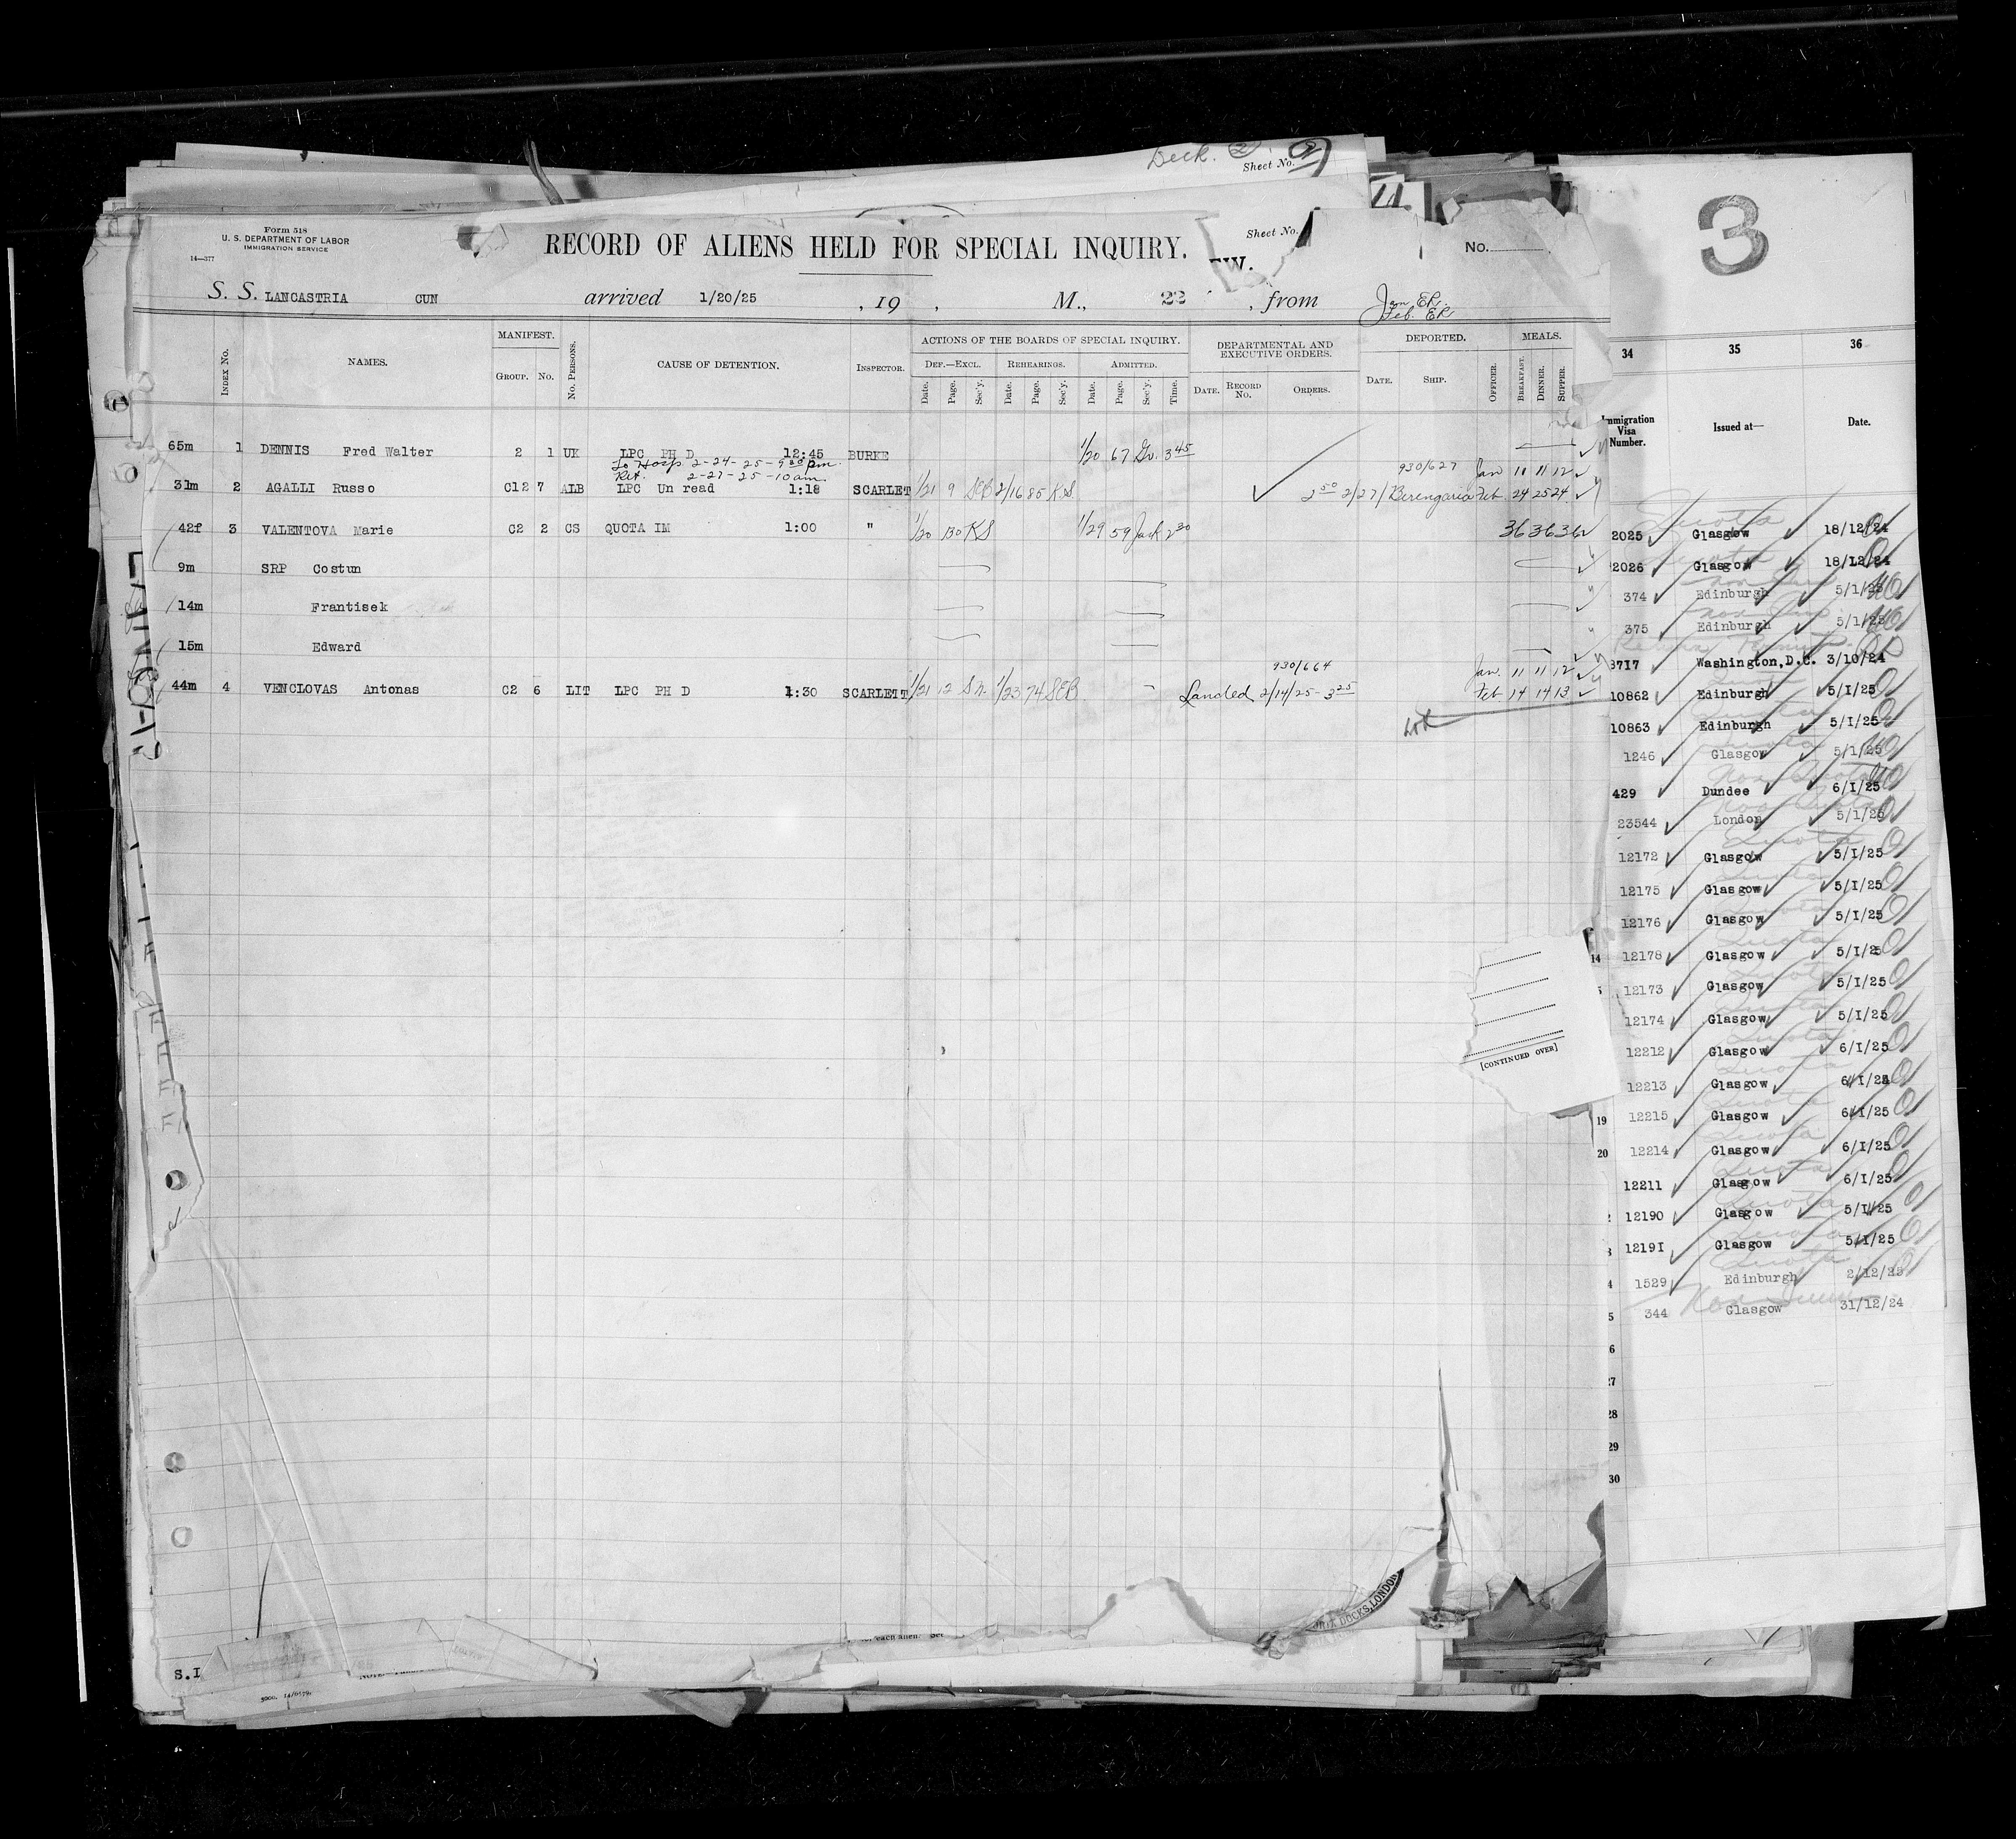 Deck. 2
Sheet No. 2
Form 518
U. S. DEPARTMENT OF LABOR
IMMIGRATION SERVICE
14—377
RECORD OF ALIENS HELD FOR SPECIAL INQUIRY.
Sheet No.
No.
3
S. S. LANCASTRIA CUN arrived 1/20/25 , 19 , M., 22 , from Jan ER.
Feb. ER
INDEX No. NAMES. MANIFEST. GROUP. No. No. PERSONS. CAUSE OF DETENTION. INSPECTOR. ACTIONS OF THE BOARDS OF SPECIAL INQUIRY. DEF.—EXCL. Date. Page. Sec'y. REHEARINGS. Date. Page. Sec'y. ADMITTED. Date. Page. Sec'y. Time. DEPARTMENTAL AND EXECUTIVE ORDERS. DATE. RECORD No. ORDERS. DEPORTED. DATE. SHIP. OFFICER. MEALS. BREAKFAST. DINNER. SUPPER.
65m 1 DENNIS Fred Walter 2 1 UK LPC PH D 12:45 BURKE 1/20 67 Gr. 3 45
To Hosp 2-24-25-9 30 pm.
Ret. 2-27-25-10 am.
930/627 Jan 11 11 12
31m 2 AGALLI Russo C12 7 ALB LPC Un read 1:18 SCARLET 1/21 9 SEB 2/16 85 K.S. 2 50 2/27/ Berengaria Feb. 24 25 24
42f 3 VALENTOVA Marie C2 2 CS QUOTA IM 1:00 " 1/20 130 KS 1/29 59 Jack 2 30 36 36 36
9m SRP Costun
14m Frantisek
15m Edward
930/664 Jan. 11 11 12
44m 4 VENCLOVAS Antonas C2 6 LIT LPC PH D 1:30 SCARLETT 1/21 12 S.N. 1/23 74 SEB Landed 2/14/25 - 3 25 Feb 14 14 13
[CONTINUED OVER]
DOCKS, LONDON
each alien.
S.I
34 35 36
Immigration Visa Number. Issued at— Date.
2025 Glasgow 18/12/24
2026 Glasgow 18/12/24
374 Edinburgh 5/1/25
375 Edinburgh 5/1/25
Return Permit
3717 Washington,D.C. 3/10/24
10862 Edinburgh 5/I/25
10863 Edinburgh 5/I/25
1246 Glasgow 5/1/25
429 Dundee 6/I/25
23544 London 5/1/25
12172 Glasgow 5/I/25
12175 Glasgow 5/I/25
12176 Glasgow 5/I/25
14 12178 Glasgow 5/I/25
12173 Glasgow 5/I/25
12174 Glasgow 5/I/25
12212 Glasgow 6/I/25
12213 Glasgow 6/I/25
19 12215 Glasgow 6/I/25
20 12214 Glasgow 6/I/25
12211 Glasgow 6/I/25
12190 Glasgow 5/I/25
1219I Glasgow 5/I/25
4 1529 Edinburgh 2/12/25
5 344 Glasgow 31/12/24
6
27
28
29
30